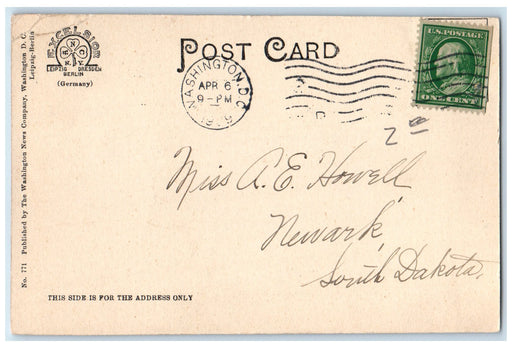 EXCELSIOR
N.Y.
LEIPZIG DRESDEN
BERLIN
(Germany)
POST CARD
WASHINGTON, D.C.
APR 6
9-PM
U.S. POSTAGE
ONE CENT
2
Miss A. E. Howell
Newark,
South Dakota,
THIS SIDE IS FOR THE ADDRESS ONLY
No. 771 Published by The Washington News Company, Washington D. C.
Leipzig-Berlin